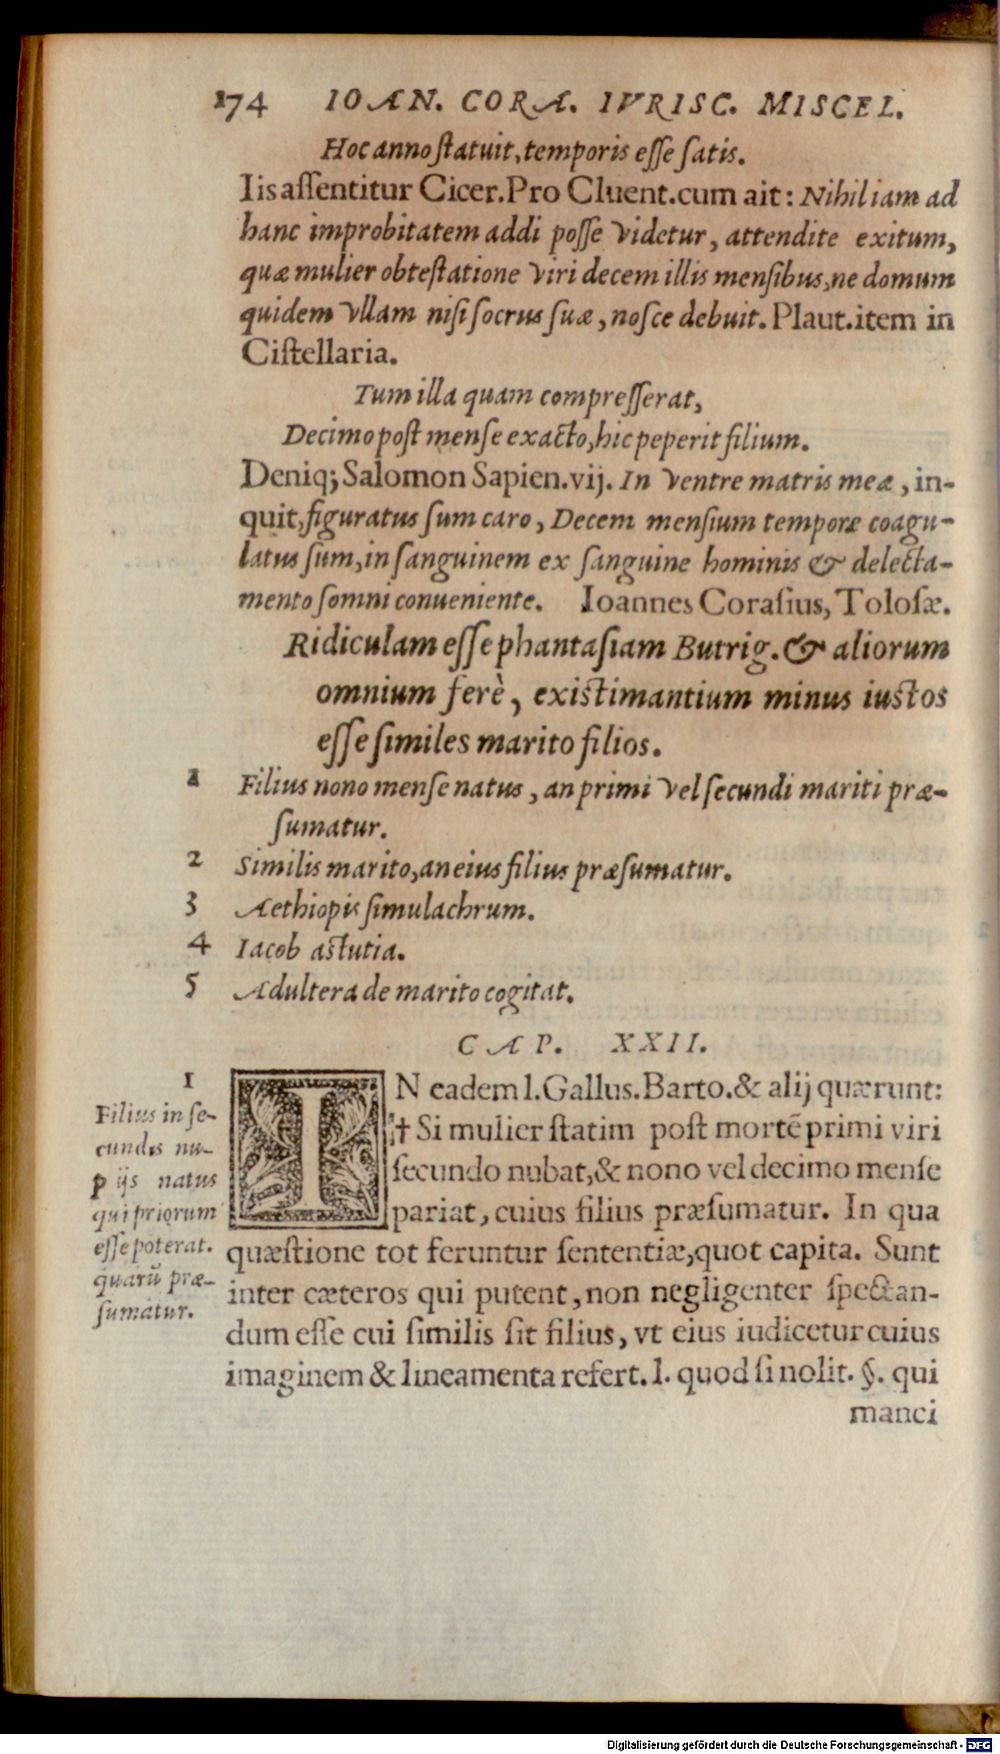 174 IOAN. CORA. IVRISC. MISCEL.
Hoc anno ſtatuit, temporis eſſe ſatis.
Iis aſſentitur Cicer. Pro Cluent. cum ait: Nihil iam ad
hanc improbitatem addi poſſe videtur, attendite exitum,
quæ mulier obteſtatione viri decem illis menſibus, ne domum
quidem vllam niſi ſocrus ſuæ, noſce debuit. Plaut. item in
Ciſtellaria.
Tum illa quam compreſſerat,
Decimo poſt menſe exacto, hic peperit filium.
Deniq; Salomon Sapien. vij. In ventre matris meæ, in-
quit, figuratus ſum caro, Decem menſium tempore coagu-
latus ſum, in ſanguinem ex ſanguine hominis & delecta-
mento ſomni conueniente. Ioannes Coraſius, Toloſæ.
Ridiculam eſſe phantaſiam Butrig. & aliorum
omnium ferè, exiſtimantium minus iuſtos
eſſe ſimiles marito filios.
1 Filius nono menſe natus, an primi vel ſecundi mariti præ-
ſumatur.
2 Similis marito, an eius filius præſumatur.
3 Aethiopis ſimulachrum.
4 Iacob aſtutia.
5 Adultera de marito cogitat.
CAP. XXII.
1
Filius in ſe-
cundis nu-
p ijs natus
qui priorum
eſſe poterat.
quarũ præ-
ſumatur.
IN eadem l. Gallus. Barto. & alij quærunt:
† Si mulier ſtatim poſt mortẽ primi viri
ſecundo nubat, & nono vel decimo menſe
pariat, cuius filius præſumatur. In qua
quæſtione tot feruntur ſententiæ, quot capita. Sunt
inter cæteros qui putent, non negligenter ſpectan-
dum eſſe cui ſimilis ſit filius, vt eius iudicetur cuius
imaginem & lineamenta refert. l. quod ſi nolit. §. qui
manci
Digitalisierung gefördert durch die Deutsche Forschungsgemeinschaft - DFG